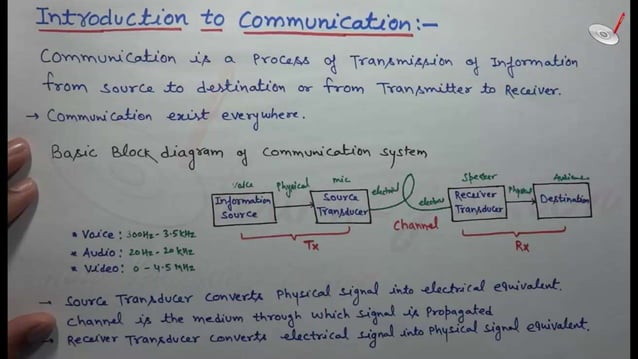 Introduction to Communication:-
Communication is a Process of Transmission of Information
from source to destination or from Transmitter to Receiver.
→ Communication exist everywhere.
Basic Block diagram of communication system
Voice Physical mic electrical electrical Speaker Physical Audience
Information Source
Source Transducer
Channel
Receiver Transducer
Destination
Tx Rx
* Voice : 300Hz - 3.5kHz
* Audio : 20Hz - 20kHz
* Video : 0 - 4.5MHz
→ Source Transducer converts Physical signal into electrical equivalent.
Channel is the medium through which signal is Propagated
→ Receiver Transducer converts electrical signal into Physical signal equivalent.